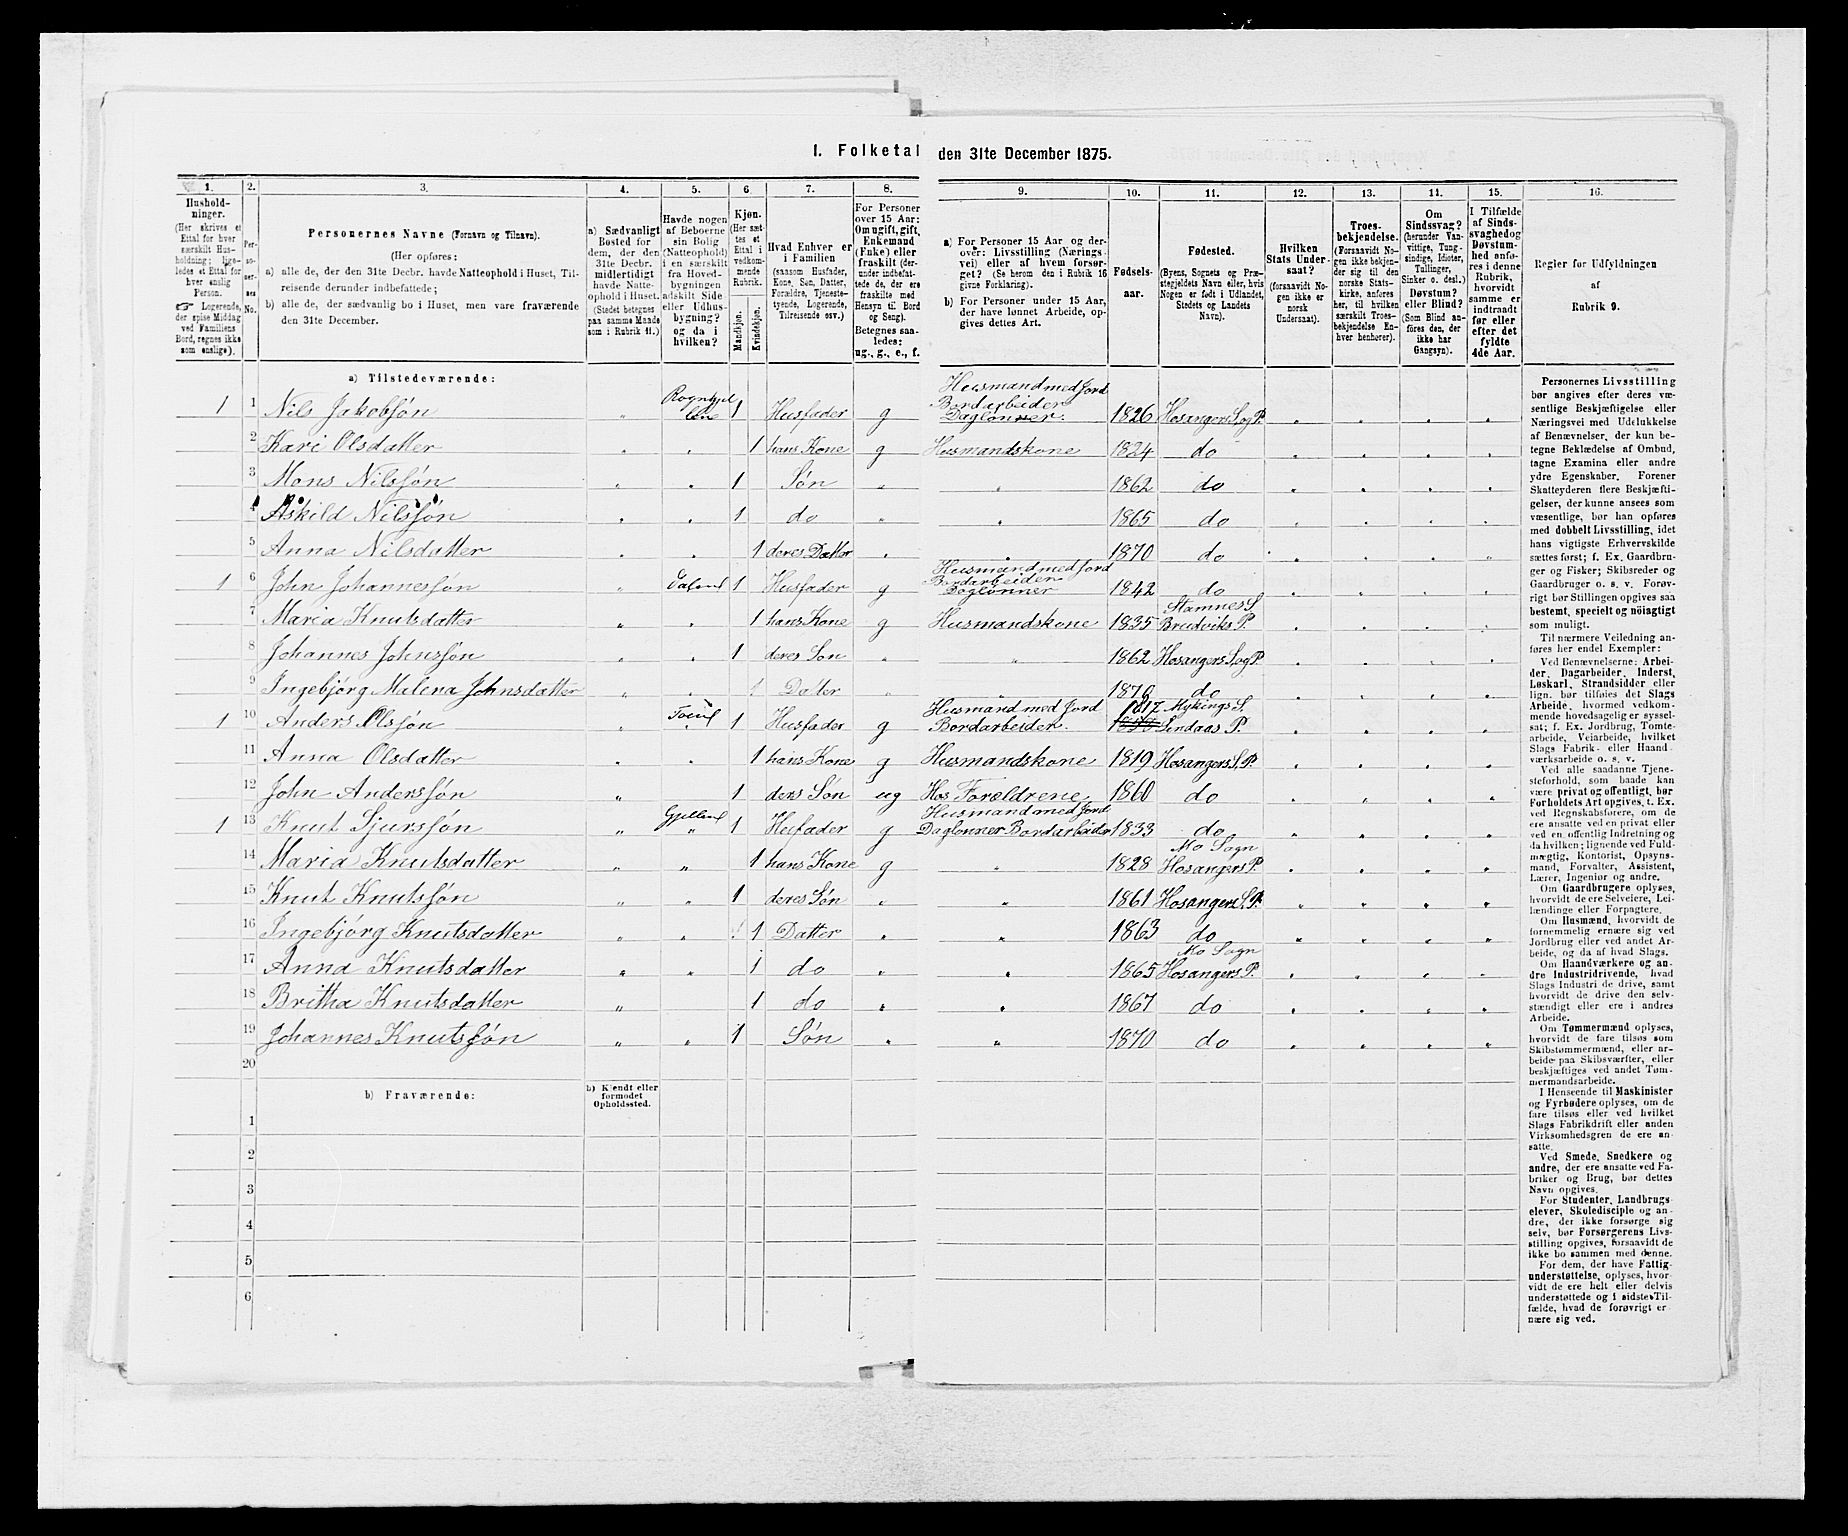 I. Folketal den 31te December 1875.
1. 2. 3. 4. 5. 6. 7. 8. 9. 10. 11. 12. 13. 11. 15. 16.
Husholdninger.
(Her skrives et
Ettal for hver
særskilt Husholdning;
ligeledes et Ettal for
hver enslig
Person.
☞ Logerende,
der spise Middag
ved Familiens
Bord, regnes ikke
som enslige).
Personernes No.
Personernes Navne (Fornavn og Tilnavn).
(Her opføres:
a) alle de, der den 31te Decbr. havde Natteophold i Huset, Tilreisende
derunder indbefattede;
b) alle de, der sædvanlig bo i Huset, men vare fraværende
den 31te December.
a) Sædvanligt
Bosted for
dem, der den
31te Decbr.
midlertidigt
havde Natteophold
i Huset.
(Stedet betegnes
paa samme Maade
som i Rubrik 11.)
Havde nogen
af Beboerne
sin Bolig
(Natteophold)
i en særskilt
fra Hovedbygningen
adskilt Side
eller Udhusbygning?
og da i
hvilken?
Kjøn.
(Her sættes
et
Ettal i
vedkommende
Rubrik.
Mandkjøn.
Kvindekjøn.
Hvad Enhver er
i Familien
(saasom Husfader,
Kone, Søn, Datter,
Forældre, Tjenestetyende,
Logerende,
Tilreisende osv.)
For Personer
over 15 Aar:
Om ugift, gift,
Enkemand
(Enke) eller
fraskilt (derunder
indbefattede
de, der ere
fraskilte med
Hensyn til Bord
og Seng).
Betegnes saaledes:
ug., g., e., f.
a) For Personer 15 Aar og derover:
Livsstilling (Næringsvei)
eller af hvem forsørget?
(Se herom den i Rubrik 16
givne Forklaring).
b) For Personer under 15 Aar,
der have lønnet Arbeide, opgives
dettes Art.
Fødselsaar.
Fødested.
(Byens, Sognets og Præstegjeldets
Navn eller, hvis
Nogen er født i Udlandet,
Stedets og Landets
Navn).
Hvilken
Stats Undersaat?
(forsaavidt Nogen
ikke er
norsk
Undersaat).
Troesbekjendelse.
(Forsaavidt Nogen
ikke bekjender
sig til den
norske Statskirke,
anføres
her, til hvilken
særskilt Troesbekjendelse
Enhver
henhører).
Om
Sindssvag?
(herunder Vanvittige,
Tungsindige,
Idioter,
Tullinger,
Sinker o. desl.)
Døvstum?
eller Blind?
(Som Blind anføres
den, der
ikke har
Gangsyn).
I Tilfælde
af Sindssvaghed
og
Døvstumhed
anføres
i denne
Rubrik,
hvorvidt
samme er
indtraadt
før eller
efter det
fyldte
4de Aar.
Regler for Udfyldningen
af
Rubrik 9.
a) Tilstedeværende:
1 1 Nils Jakobsøn 1 Husfader g Husmand med Jord Bordarbeider Daglønner. 1826 Hosanger S. og P.
2 Kari Olsdatter 1 hans Kone g Husmandskone 1824 do
3 Mons Nilssøn 1 Søn 1862 do
4 Askild Nilssøn 1 do 1865 do
5 Anna Nilsdatter 1 deres Datter 1870 do
1 6 John Johannessøn 1 Husfader g Husmand med Jord Bordarbeider Daglønner 1842 do
7 Maria Knutsdatter 1 hans Kone g Husmandskone 1835 Stamnes S. Brudviks P.
8 Johannes Johnssøn 1 deres Søn 1862 Hosangers S. og P.
9 Ingebjörg Malena Johnsdatter 1 Datter do
1 10 Anders Olssøn 1 Husfader g Husmand med Jord Bordarbeider. 1817 Mykings S. Lindaas P.
11 Anna Olsdatter 1 hans Kone g Husmandskone 1819 Hosangers S. P.
12 John Anderssøn 1 deres Søn ug Hos Forældrene 1860 do
1 13 Knut Sjurssøn 1 Husfader g Husmand med Jord Daglønner Bordarbeider 1833 do
14 Maria Knutsdatter 1 hans Kone g 1828 Mo Sogn Hosangers P.
15 Knut Knutssøn 1 deres Søn 1861 Hosangers S. P.
16 Ingebjörg Knutsdatter 1 Datter 1863 do
17 Anna Knutsdatter 1 do 1865 Mo Sogn Hosangers P.
18 Britha Knutsdatter 1 do 1867 do
19 Johannes Knutssøn 1 Søn 1870 do
20
b) Fraværende:
b) Kjendt eller
formodet
Opholdssted.
1
2
3
4
5
6
Personernes Livsstilling
bør angives efter deres væsentlige
Beskjæftigelse eller
Næringsvei med Udelukkelse
af Benævnelser, der kun betegne
Beklædelse af Ombud,
tagne Examina eller andre
ydre Egenskaber. Forener
Skatteyderen flere Beskjæftigelser,
der kunne ansees som
væsentlige, bør han opføres
med dobbelt Livsstilling, idet
hans vigtigste Erhvervskilde
sættes først; f. Ex. Gaardbruger
og Fisker; Skibsreder og
Gaardbruger o. s. v. Forøvrigt
bør Stillingen opgives saa
bestemt, specielt og nöiagtigt
som muligt.
Til nærmere Veiledning anføres
her endel Exempler:
Ved Benævnelserne: Arbeider,
Dagarbeider, Inderst,
Løskarl, Strandsidder eller
lign. bør tilføies det Slags
Arbeide, hvormed vedkommende
hovedsagelig er sysselsat;
f. Ex. Jordbrug, Tomtearbeide,
Veiarbeide, hvilket
Slags Fabrik- eller Haandværksarbeide
o. s. v.
Ved alle saadanne Tjenesteforhold,
som baade kan
være privat og offentligt, bør
Forholdets Art opgives, t. Ex.
ved Regnskabsførere, om de
ere ansatte ved en privat eller
ved en offentlig Indretning og
da hvilken; lignende ved Fuldmægtig,
Kontorist, Opsynsmand,
Forvalter, Assistent,
Lærer, Ingeniør og andre.
Om Gaardbrugere oplyses,
hvorvidt de ere Selveiere, Leilændinge
eller Forpagtere.
Om Husmænd, hvorvidt de
fornemmelig ernære sig ved
Jordbrug eller ved andet Arbeide,
og da af hvad Slags.
Om Haandværkere og andre
Industridrivende, hvad
Slags Industri de drive, samt
hvorvidt de drive den selvstændigt
eller ere i andres
Arbeide.
Om Tømmermænd oplyses,
hvorvidt de fare tilsøs som
Skibstømmermænd, eller arbeide
paa Skibsværfter, eller
beskjæftiges ved andet Tømmermandsarbeide.
I Henseende til Maskinister
og Fyrbødere oplyses, om de
fare tilsøs eller ved hvilket
Slags Fabrikdrift eller anden
Virksomhedsgren de ere ansatte.
Ved Smede, Snedkere og
andre, der ere ansatte ved Fabriker
og Brug, bør dettes
Navn opgives.
For Studenter, Landbrugselever,
Skoledisciple og andre,
der ikke forsørge sig
selv, bør Forsørgerens Livsstilling
opgives, forsaavidt de
ikke bo sammen med denne.
For dem, der have Fattigunderstøttelse,
oplyses, hvorvidt
de ere helt eller delvis
understøttede og i sidste Tilfælde,
hvad de forøvrigt ernære
sig ved.